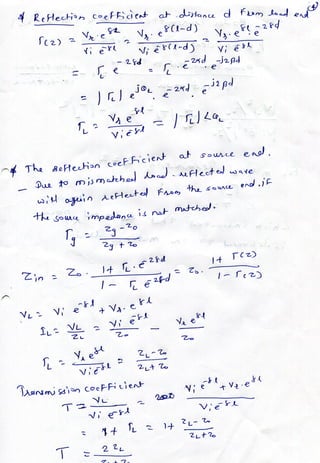 * Reflection coefficient at distance d from load end
Γ(z) = Vr·e^γz / Vi e^-γz = Vr·e^γ(l-d) / Vi e^-γ(l-d) = Vr·e^γl·e^-2γd / Vi e^-γl
= Γ_L e^-2γd = Γ_L·e^-2αd·e^-j2βd
= |Γ_L| e^jθ_L·e^-2αd·e^-j2βd
Γ_L = Vr e^γl / Vi e^-γl = |Γ_L| ∠θ_L
* The reflection coefficient at source end.
- Due to mismatched load - reflected wave
will again reflected from the source end. if
the source impedance is not matched.
Γg = Zg - Zo / Zg + Zo
Zin = Zo · 1 + Γ_L·e^-2γd / 1 - Γ_L e^-2γd = Zo. 1 + Γ(z) / 1 - Γ(z)
V_L = Vi e^-γl + Vr·e^γl
I_L = V_L / Z_L = Vi e^-γl / Zo - Vr e^γl / Zo
Γ_L = Vr e^γl / Vi e^-γl = Z_L - Zo / Z_L + Zo
Transmission coefficient
T = V_L / Vi e^-γl = Vi e^-γl + Vr·e^γl / Vi e^-γl
= 1 + Γ_L = 1 + Z_L - Zo / Z_L + Zo
T = 2 Z_L